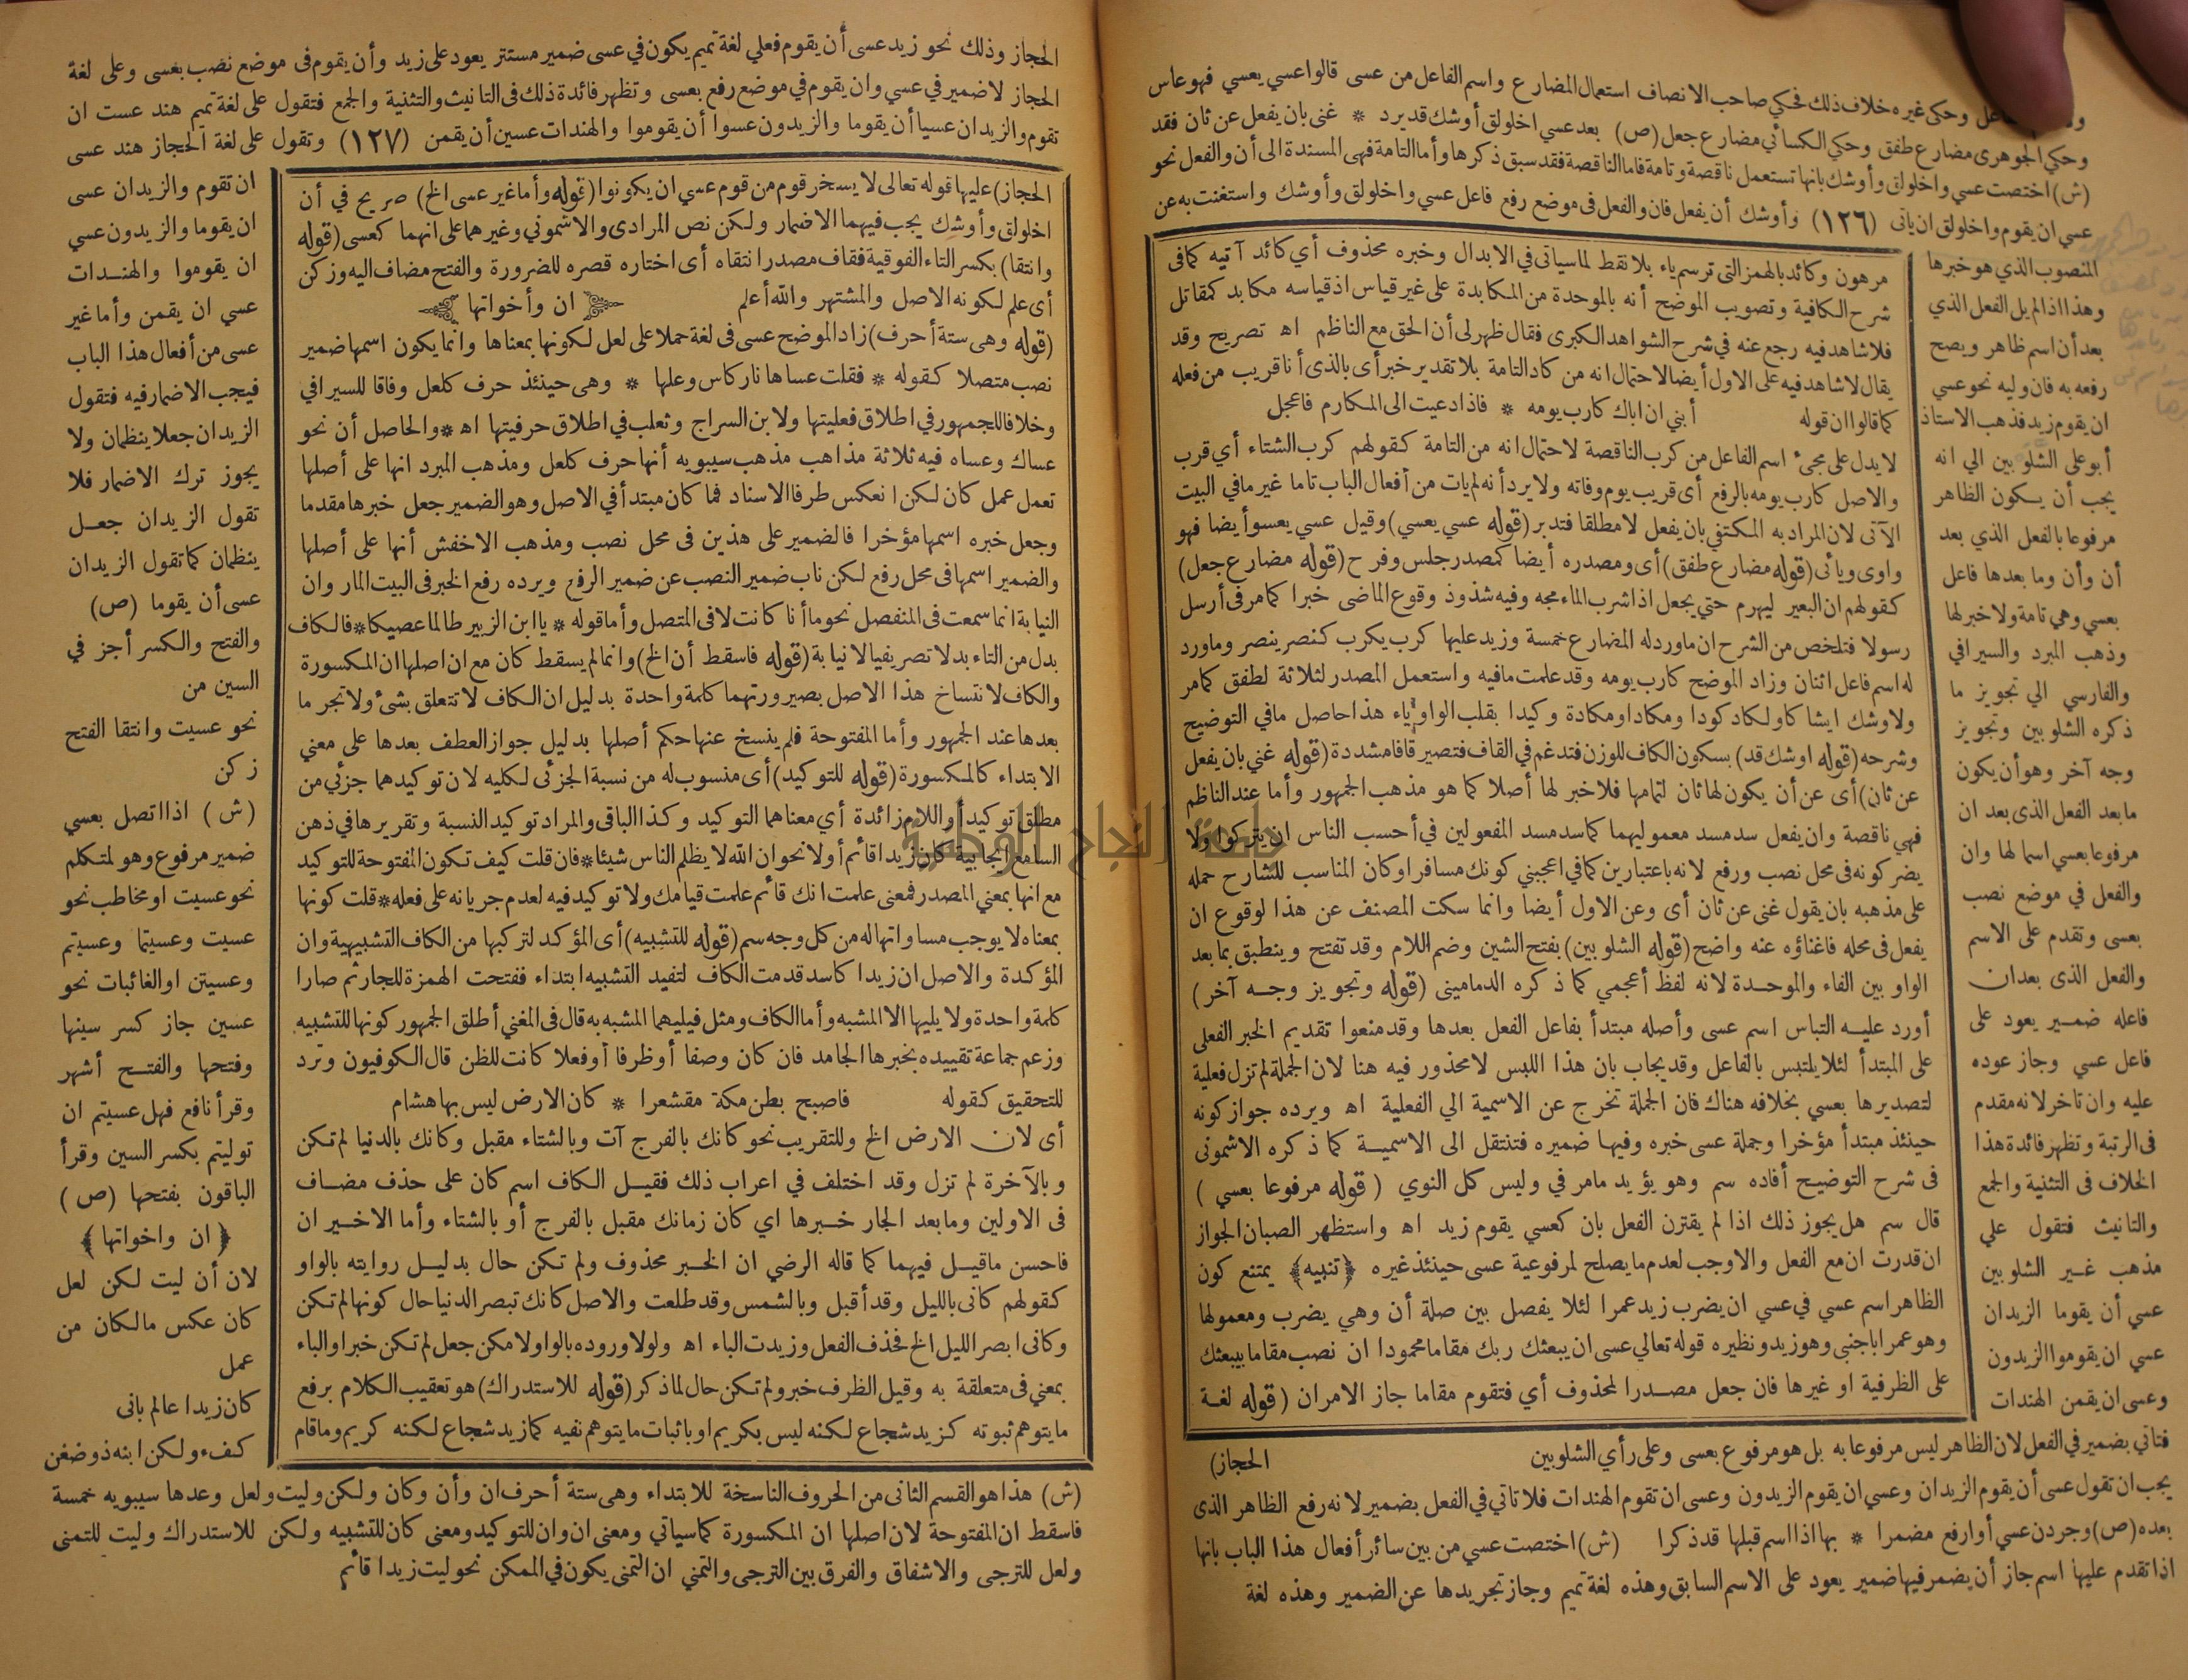 وحكى غيره خلاف ذلك فحكي صاحب الانصاف استعمال المضارع واسم الفاعل من عسى قالوا عسي يعسي فهو عاس
وحكي الجوهرى مضارع طفق وحكي الكسائي مضارع جعل (ص) بعد عسي اخلولق أوشك قد يرد * غنى بان يفعل عن ثان فقد
(ش) اختصت عسي واخلولق وأوشك بانها تستعمل ناقصة وتامة فاما الناقصة فقد سبق ذكرها وأما التامة فهى المسندة الى أن والفعل نحو
عسي ان يقوم واخلولق ان ياتى (١٢٦) وأوشك أن يفعل فان والفعل فى موضع رفع فاعل عسي واخلولق وأوشك واستغنت به عن
المنصوب الذي هو خبرها
وهذا اذا لم يل الفعل الذي
بعد أن اسم ظاهر ويصح
رفعه به فان وليه نحو عسي
ان يقوم زيد فذهب الاستاذ
أبو على الشلوبين الي انه
يجب أن يكون الظاهر
مرفوعا بالفعل الذي بعد
أن وأن وما بعدها فاعل
بعسي وهي تامة ولا خبر لها
وذهب المبرد والسيرافي
والفارسي الي تجويز ما
ذكره الشلوبين وتجويز
وجه آخر وهو أن يكون
ما بعد الفعل الذى بعد ان
مرفوعا بعسي اسما لها وان
والفعل في موضع نصب
بعسى وتقدم على الاسم
والفعل الذى بعد ان
فاعله ضمير يعود على
فاعل عسي وجاز عوده
عليه وان تاخر لانه مقدم
فى الرتبة وتظهر فائدة هذا
الخلاف فى التثنية والجمع
والتانيث فتقول علي
مذهب غير الشلوبين
عسي أن يقوما الزيدان
عسي ان يقوموا الزيدون
وعسى ان يقمن الهندات
مرهون وكائد بالهمز التى ترسم ياء بلا نقط لما سياتى في الابدال وخبره محذوف أي كائد آتيه كما فى
شرح الكافية وتصويب الموضح أنه بالموحدة من المكابدة على غير قياس اذ قياسه مكابد كمقاتل
فلا شاهد فيه رجع عنه في شرح الشواهد الكبرى فقال ظهر لى أن الحق مع الناظم اه تصريح وقد
يقال لا شاهد فيه على الاول أيضا لاحتمال انه من كاد التامة بلا تقدير خبر أى بالذى أنا قريب من فعله
كما قالوا ان قوله أبني ان اباك كارب يومه * فاذا دعيت الى المكارم فاعجل
لا يدل على مجىء اسم الفاعل من كرب الناقصة لاحتمال انه من التامة كقولهم كرب الشتاء أي قرب
والاصل كارب يومه بالرفع أى قريب يوم وفاته ولا يرد أنه لم يات من أفعال الباب تاما غير ما في البيت
الآتى لان المراد به المكتفي بان يفعل لا مطلقا فتدبر (قوله عسي يعسي) وقيل عسي يعسو أيضا فهو
واوى ويائى (قوله مضارع طفق) أى ومصدره أيضا كمصدر جلس وفرح (قوله مضارع جعل)
كقولهم ان البعير ليهرم حتي يجعل اذا شرب الماء مجه وفيه شذوذ وقوع الماضى خبرا كما مر فى أرسل
رسولا فتلخص من الشرح ان ما ورد له المضارع خمسة وزيد عليها كرب يكرب كنصر ينصر وما ورد
له اسم فاعل اثنان وزاد الموضح كارب يومه وقد علمت ما فيه واستعمل المصدر لثلاثة لطفق كما مر
ولاوشك ايشاكا ولكاد كودا ومكادا ومكادة وكيدا بقلب الواو ياء هذا حاصل ما في التوضيح
وشرحه (قوله اوشك قد) بسكون الكاف للوزن فتدغم في القاف فتصير قافا مشددة (قوله غني بان يفعل
عن ثان) أى عن أن يكون لها ثان لتمامها فلا خبر لها أصلا كما هو مذهب الجمهور وأما عند الناظم
فهي ناقصة وان يفعل سد مسد معموليهما كما سد مسد المفعولين في أحسب الناس ان يتركوا ولا
يضر كونه فى محل نصب ورفع لانه باعتبارين كما في اعجبني كونك مسافرا وكان المناسب للشارح حمله
على مذهبه بان يقول غنى عن ثان أى وعن الاول أيضا وانما سكت المصنف عن هذا لوقوع ان
يفعل فى محله فاغناؤه عنه واضح (قوله الشلوبين) بفتح الشين وضم اللام وقد تفتح وينطبق بما بعد
الواو بين الفاء والموحدة لانه لفظ أعجمي كما ذكره الدمامينى (قوله وتجويز وجه آخر)
أورد عليه التباس اسم عسى وأصله مبتدأ بفاعل الفعل بعدها وقد منعوا تقديم الخبر الفعلى
على المبتدأ لئلا يلتبس بالفاعل وقد يجاب بان هذا اللبس لا محذور فيه هنا لان الجملة لم تزل فعلية
لتصديرها بعسي بخلافه هناك فان الجملة تخرج عن الاسمية الي الفعلية اه ويرده جواز كونه
حينئذ مبتدأ مؤخرا وجملة عسى خبره وفيها ضميره فتنتقل الى الاسمية كما ذكره الاشمونى
فى شرح التوضيح أفاده سم وهو يؤيد ما مر في وليس كل النوي (قوله مرفوعا بعسي)
قال سم هل يجوز ذلك اذا لم يقترن الفعل بان كعسي يقوم زيد اه واستظهر الصبان الجواز
ان قدرت ان مع الفعل والا وجب لعدم ما يصلح لمرفوعية عسى حينئذ غيره ﴿تنبيه﴾ يمتنع كون
الظاهر اسم عسي في عسي ان يضرب زيد عمرا لئلا يفصل بين صلة أن وهي يضرب ومعمولها
وهو عمرا باجنبي وهو زيد ونظيره قوله تعالي عسى ان يبعثك ربك مقاما محمودا ان نصب مقاما بيبعثك
على الظرفية او غيرها فان جعل مصدرا لمحذوف أي فتقوم مقاما جاز الامران (قوله لغة
الحجاز)
فتاتي بضمير في الفعل لان الظاهر ليس مرفوعا به بل هو مرفوع بعسى وعلى رأي الشلوبين
يجب ان تقول عسى أن يقوم الزيدان وعسي ان يقوم الزيدون وعسى ان تقوم الهندات فلا تاتي في الفعل بضمير لانه رفع الظاهر الذى
بعده (ص) وجردن عسي أو ارفع مضمرا * بها اذا اسم قبلها قد ذكرا (ش) اختصت عسي من بين سائر أفعال هذا الباب بانها
اذا تقدم عليها اسم جاز أن يضمر فيها ضمير يعود على الاسم السابق وهذه لغة تميم وجاز تجريدها عن الضمير وهذه لغة
الحجاز وذلك نحو زيد عسى أن يقوم فعلي لغة تميم يكون في عسى ضمير مستتر يعود على زيد وأن يقوم فى موضع نصب بعسى وعلى لغة
الحجاز لا ضمير في عسي وان يقوم في موضع رفع بعسى وتظهر فائدة ذلك فى التانيث والتثنية والجمع فتقول على لغة تميم هند عست ان
تقوم والزيدان عسيا أن يقوما والزيدون عسوا أن يقوموا والهندات عسين أن يقمن (١٢٧) وتقول على لغة الحجاز هند عسى
ان تقوم والزيدان عسى
ان يقوما والزيدون عسي
ان يقوموا والهندات
عسي ان يقمن وأما غير
عسى من أفعال هذا الباب
فيجب الاضمار فيه فتقول
الزيدان جعلا ينظمان ولا
يجوز ترك الاضمار فلا
تقول الزيدان جعل
ينظمان كما تقول الزيدان
عسى أن يقوما (ص)
والفتح والكسر أجز في
السين من
نحو عسيت وانتقا الفتح
زكن
(ش) اذا اتصل بعسي
ضمير مرفوع وهو لمتكلم
نحو عسيت او مخاطب نحو
عسيت وعسيتما وعسيتم
وعسيتن او الغائبات نحو
عسين جاز كسر سينها
وفتحها والفتح أشهر
وقرأ نافع فهل عسيتم ان
توليتم بكسر السين وقرأ
الباقون بفتحها (ص)
﴿ان واخواتها﴾
لان أن ليت لكن لعل
كان عكس ما لكان من
عمل
كان زيدا عالم بانى
كفء ولكن ابنه ذو ضغن
الحجاز) عليها قوله تعالى لا يسخر قوم من قوم عسي ان يكونوا (قوله وأما غير عسى الخ) صريح في أن
اخلولق وأوشك يجب فيهما الاضمار ولكن نص المرادى والاشموني وغيرهما على انهما كعسى (قوله
وانتقا) بكسر التاء الفوقية فقاف مصدر انتقاه أى اختاره قصره للضرورة والفتح مضاف اليه وزكن
أى علم لكونه الاصل والمشتهر والله أعلم ان وأخواتها
(قوله وهى ستة أحرف) زاد الموضح عسى فى لغة حملا على لعل لكونها بمعناها وانما يكون اسمها ضمير
نصب متصلا كقوله * فقلت عساها نار كاس وعلها * وهى حينئذ حرف كلعل وفاقا للسيرافي
وخلافا للجمهور في اطلاق فعليتها ولابن السراج وثعلب في اطلاق حرفيتها اه * والحاصل أن نحو
عساك وعساه فيه ثلاثة مذاهب مذهب سيبويه أنها حرف كلعل ومذهب المبرد انها على أصلها
تعمل عمل كان لكن انعكس طرفا الاسناد فما كان مبتدأ في الاصل وهو الضمير جعل خبرها مقدما
وجعل خبره اسمها مؤخرا فالضمير على هذين فى محل نصب ومذهب الاخفش أنها على أصلها
والضمير اسمها فى محل رفع لكن ناب ضمير النصب عن ضمير الرفع ويرده رفع الخبر فى البيت المار وان
النيابة انما سمعت فى المنفصل نحو ما أنا كانت لا فى المتصل وأما قوله * يا ابن الزبير طالما عصيكا * فالكاف
بدل من التاء بدلا تصريفيا لا نيابة (قوله فاسقط أن الخ) وانما لم يسقط كان مع ان اصلها ان المكسورة
والكاف لانتساخ هذا الاصل بصيرورتهما كلمة واحدة بدليل ان الكاف لا تتعلق بشئ ولا تجر ما
بعدها عند الجمهور وأما المفتوحة فلم ينسخ عنها حكم أصلها بدليل جواز العطف بعدها على معني
الابتداء كالمكسورة (قوله للتوكيد) أى منسوب له من نسبة الجزئى لكليه لان توكيدهما جزئي من
مطلق توكيد أو اللام زائدة أي معناهما التوكيد وكذا الباقى والمراد توكيد النسبة وتقريرها في ذهن
السامع ايجابية كان زيدا قائم أو لا نحو ان الله لا يظلم الناس شيئا * فان قلت كيف تكون المفتوحة للتوكيد
مع انها بمعني المصدر فمعنى علمت انك قائم علمت قيامك ولا توكيد فيه لعدم جريانه على فعله * قلت كونها
بمعناه لا يوجب مساواتها له من كل وجه سم (قوله للتشبيه) أى المؤكد لتركبها من الكاف التشبيهية وان
المؤكدة والاصل ان زيدا كاسد قدمت الكاف لتفيد التشبيه ابتداء ففتحت الهمزة للجار ثم صارا
كلمة واحدة ولا يليها الا المشبه وأما الكاف ومثل فيليهما المشبه به قال فى المغني أطلق الجمهور كونها للتشبيه
وزعم جماعة تقييده بخبرها الجامد فان كان وصفا أو ظرفا أو فعلا كانت للظن قال الكوفيون وترد
للتحقيق كقوله فاصبح بطن مكة مقشعرا * كان الارض ليس بها هشام
أى لان الارض الخ وللتقريب نحو كانك بالفرج آت وبالشتاء مقبل وكانك بالدنيا لم تكن
وبالآخرة لم تزل وقد اختلف في اعراب ذلك فقيل الكاف اسم كان على حذف مضاف
فى الاولين وما بعد الجار خبرها اي كان زمانك مقبل بالفرج أو بالشتاء وأما الاخير ان
فاحسن ما قيل فيهما كما قاله الرضي ان الخبر محذوف ولم تكن حال بدليل روايته بالواو
كقولهم كانى بالليل وقد أقبل وبالشمس وقد طلعت والاصل كانك تبصر الدنيا حال كونها لم تكن
وكانى ابصر الليل الخ فحذف الفعل وزيدت الباء اه ولولا وروده بالواو لامكن جعل لم تكن خبرا والباء
بمعني فى متعلقة به وقيل الظرف خبر ولم تكن حال لما ذكر (قوله للاستدراك) هو تعقيب الكلام برفع
ما يتوهم ثبوته كزيد شجاع لكنه ليس بكريم او باثبات ما يتوهم نفيه كما زيد شجاع لكنه كريم وما قام
(ش) هذا هو القسم الثانى من الحروف الناسخة للابتداء وهى ستة أحرف ان وأن وكان ولكن وليت ولعل وعدها سيبويه خمسة
فاسقط ان المفتوحة لان اصلها ان المكسورة كما سياتي ومعنى ان وان للتوكيد ومعنى كان للتشبيه ولكن للاستدراك وليت للتمنى
ولعل للترجى والاشفاق والفرق بين الترجى والتمني ان التمنى يكون في الممكن نحو ليت زيدا قائم
جامعة النجاح الوطنية